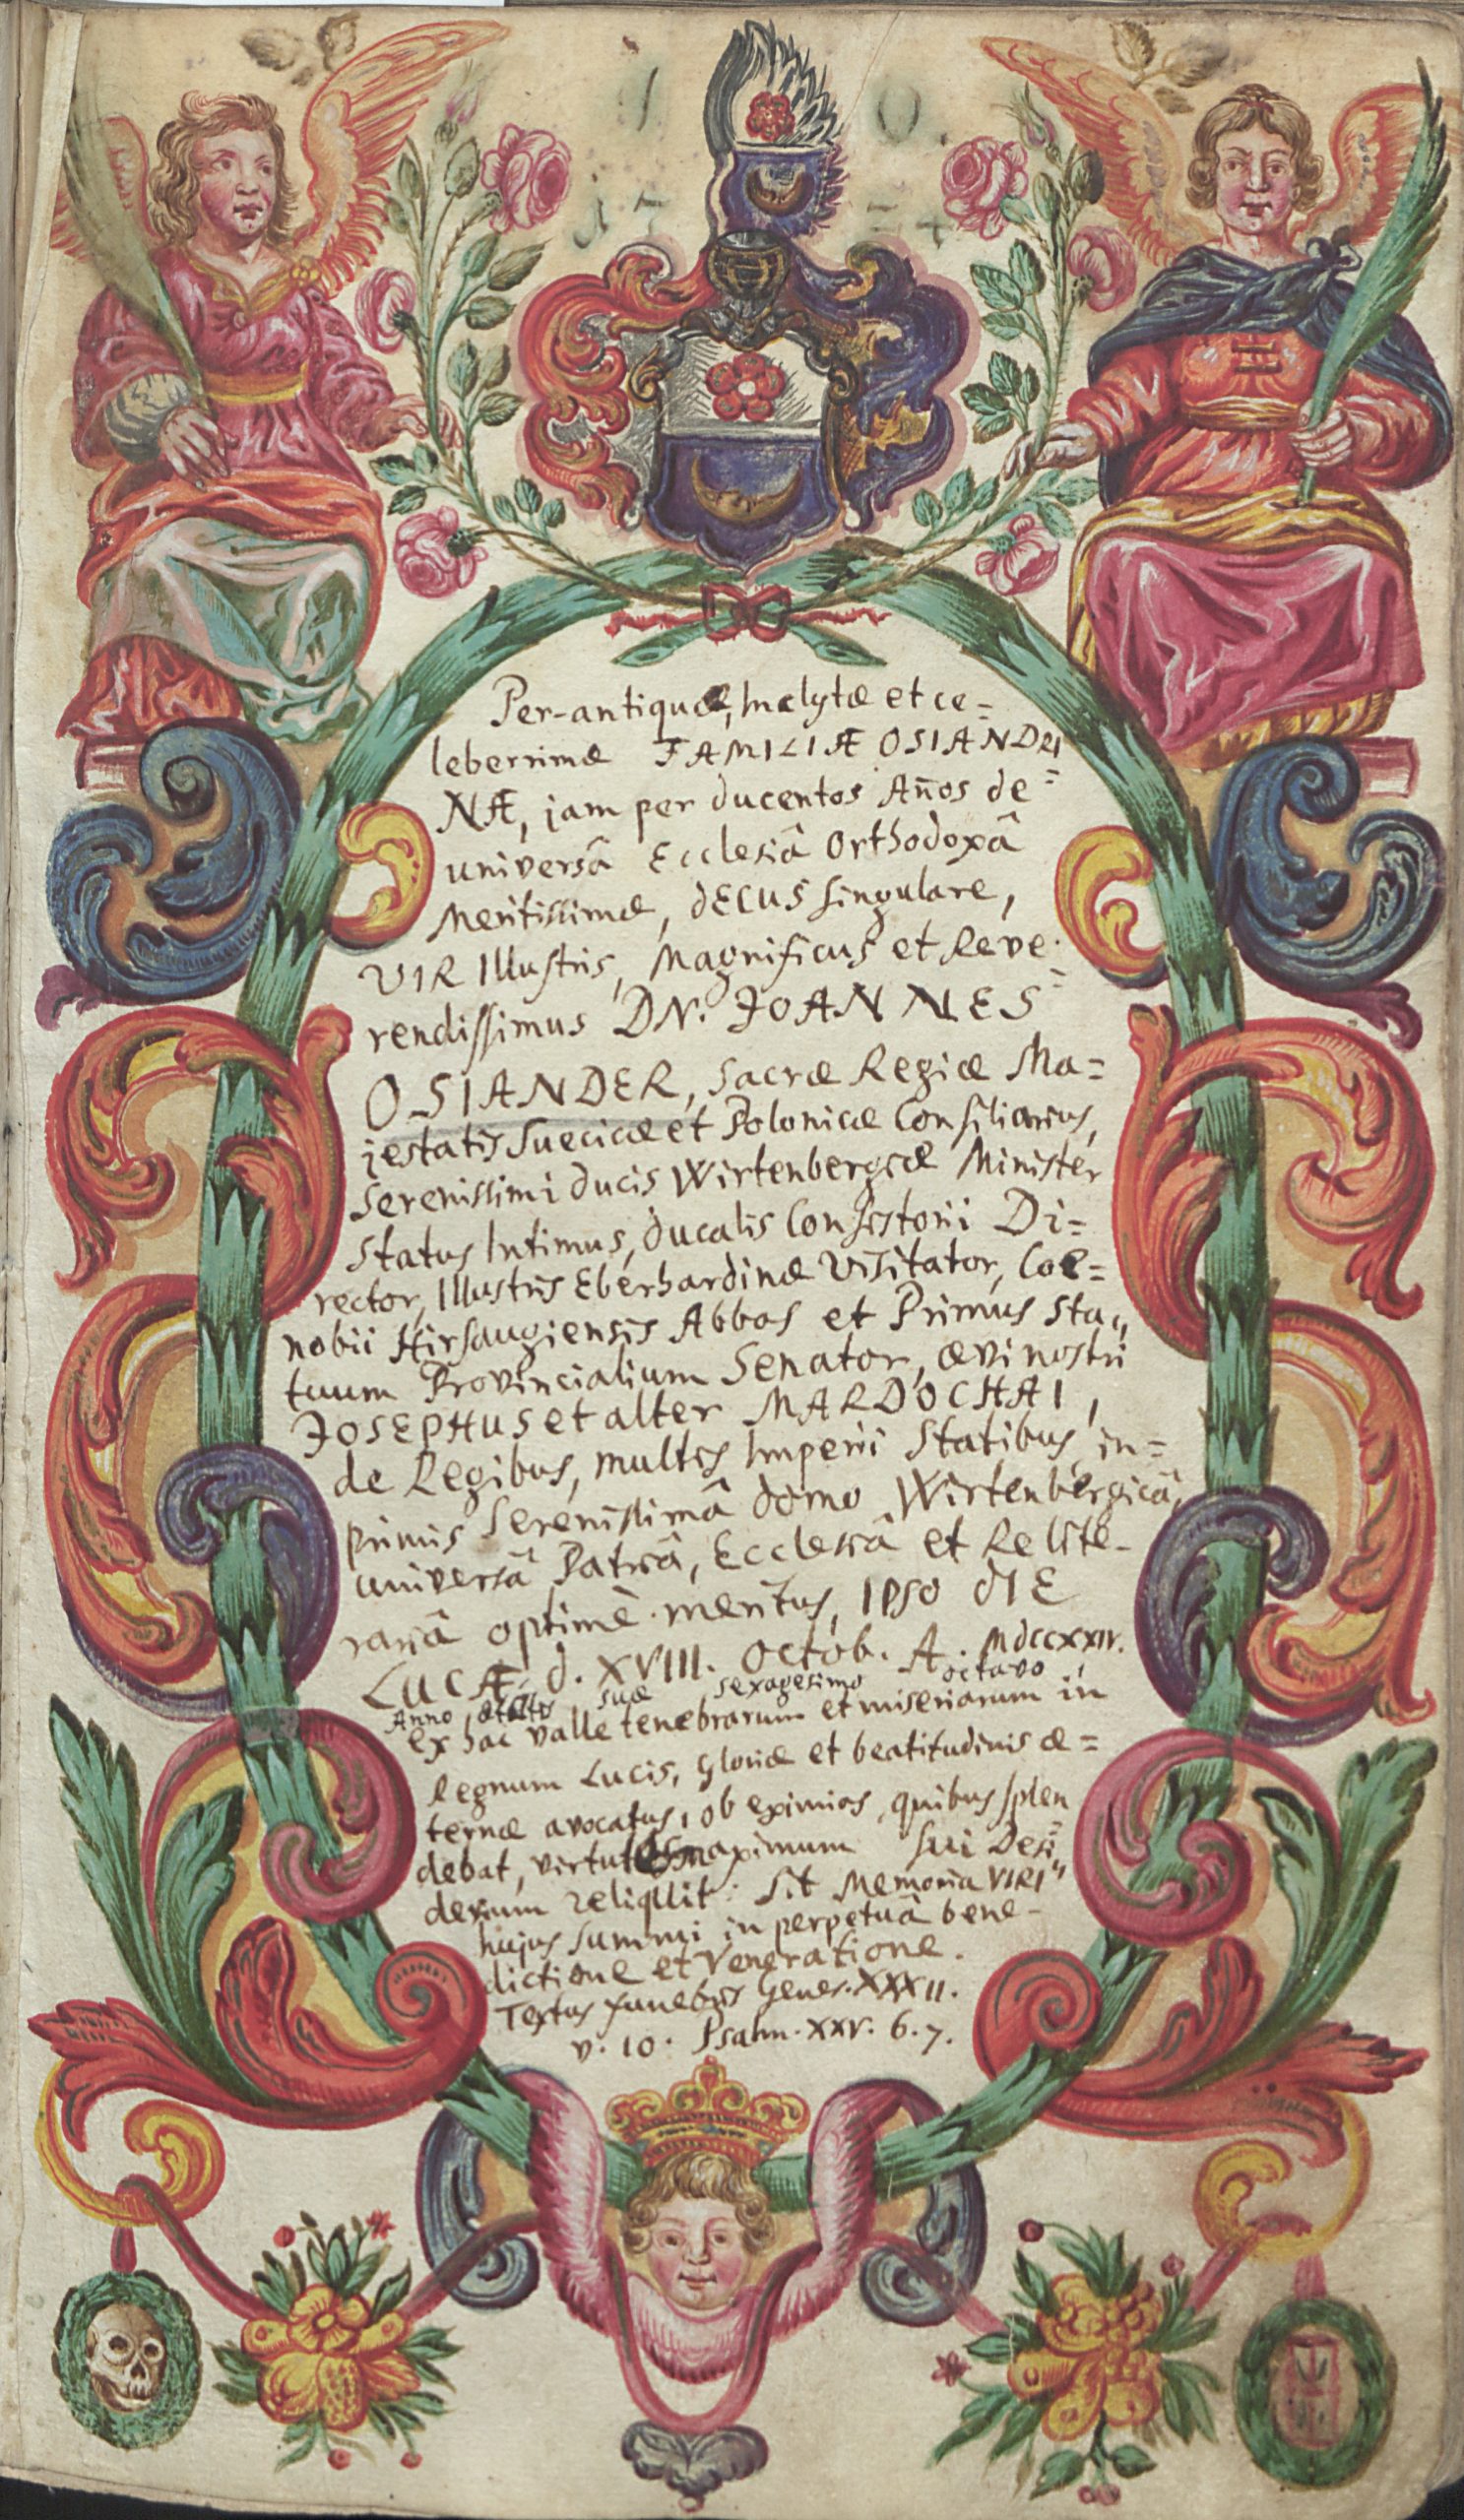 J. O.
17 24
Per-antiquæ, Inclytæ et ce=
leberrimæ FAMILIÆ OSIANDRI
NÆ, jam per ducentos Años de=
universâ Ecclesiâ Orthodoxâ
Meritissimæ, DECUS singulare,
VIR Illustris, Magnificus et Reve=
rendissimus DN. JOANNES
OSIANDER, Sacræ Regiæ Ma=
jestatis Sueciæ et Poloniæ Consiliarius,
Serenissimi Ducis Wirtenbergiæ Minister
Status Intimus, Ducalis Consistorii Di=
rector, Illustris Eberhardinæ Visitator, Coe=
nobii Hirsaugiensis Abbas et Primus Sta„
tuum Provincialium Senator, ævi nostri
JOSEPHUS et alter MARDOCHAI,
de Regibus, multis Imperii Statibus, in=
primis Serenissimâ domo Wirtenbergicâ,
universâ Patriâ, Ecclesiâ et Re lite-
rariâ optimè meritus, IPSO DIE
LUCÆ, d. XVIII. Octob. A. MDCCXXIV.
Anno ætatis suæ sexagesimo octavo
ex hac valle tenebrarum et miseriarum in
Regnum Lucis, Gloriæ et beatitudinis æ=
ternæ avocatus, ob eximias, quibus splen=
debat, virtutes maximum sui Desi„
derium reliquit: Sit Memoria VIRI
hujus summi in perpetuâ bene-
dictione et Veneratione.
Textus funebris Genes. XXXII.
v. 10. Psalm. XXV. 6. 7.